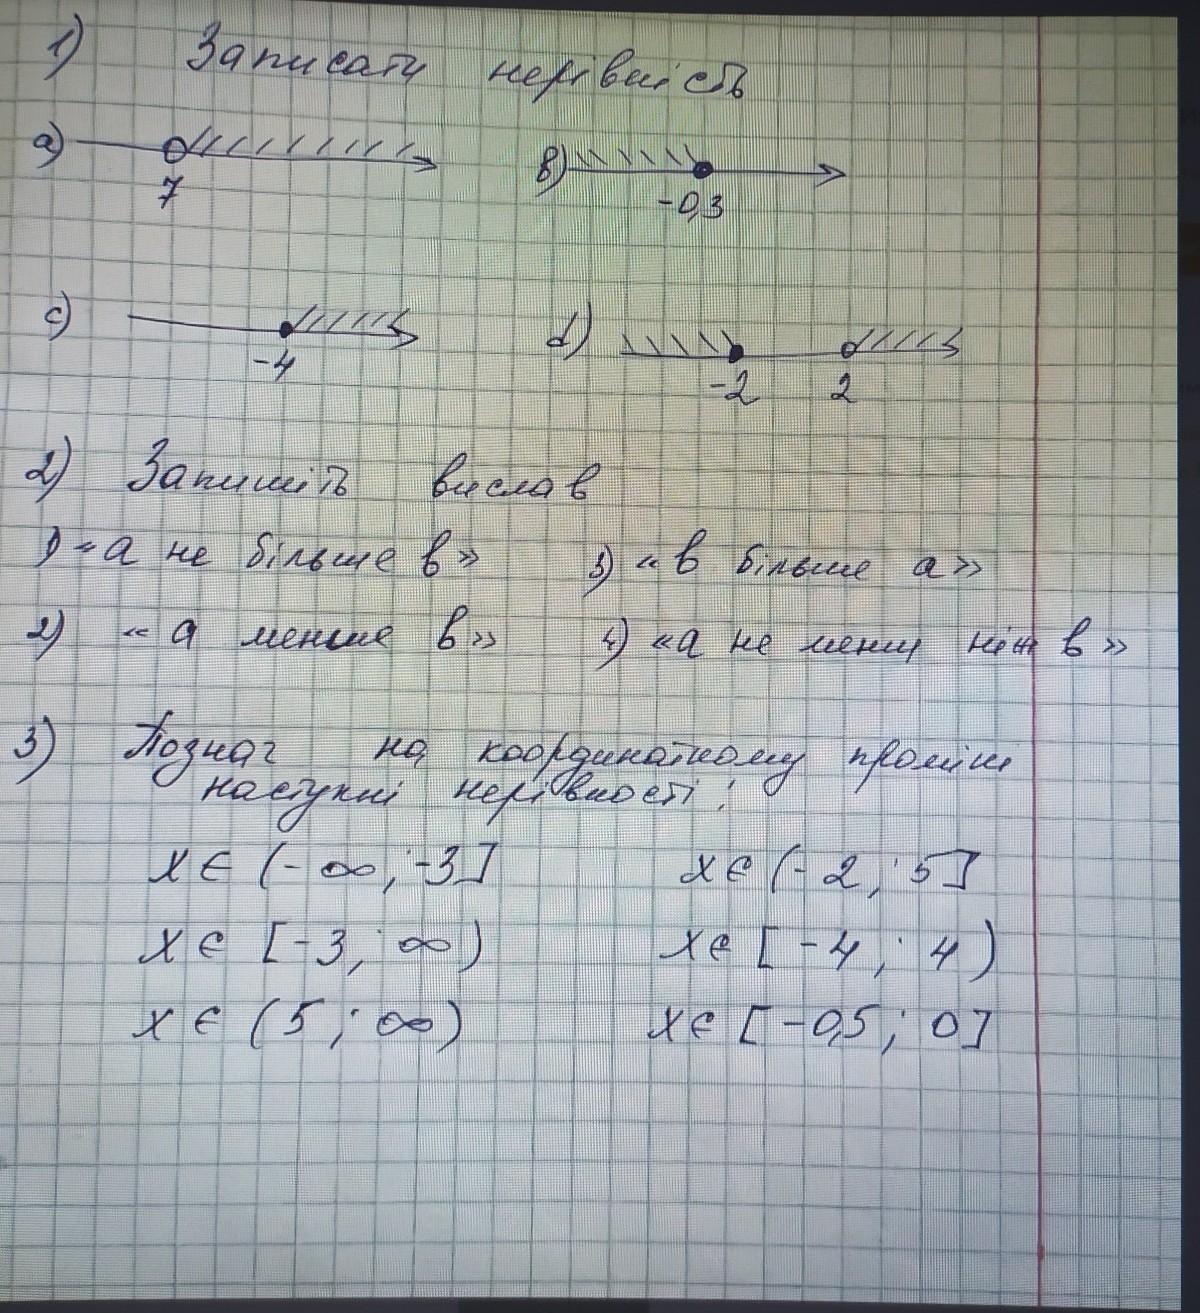 1) Записати нерівність
a) 7 в) -0,3
c) -4 d) -2 2
2) Запишіть вислів
1) «a не більше в» 3) «в більше a»
2) «a менше в» 4) «a не менш ніж в»
3) Познач на координатному проміні
наступні нерівності:
x∈(-∞; -3] x∈(-2; 5]
x∈[-3; ∞) x∈[-4; 4)
x∈(5; ∞) x∈[-0,5; 0]